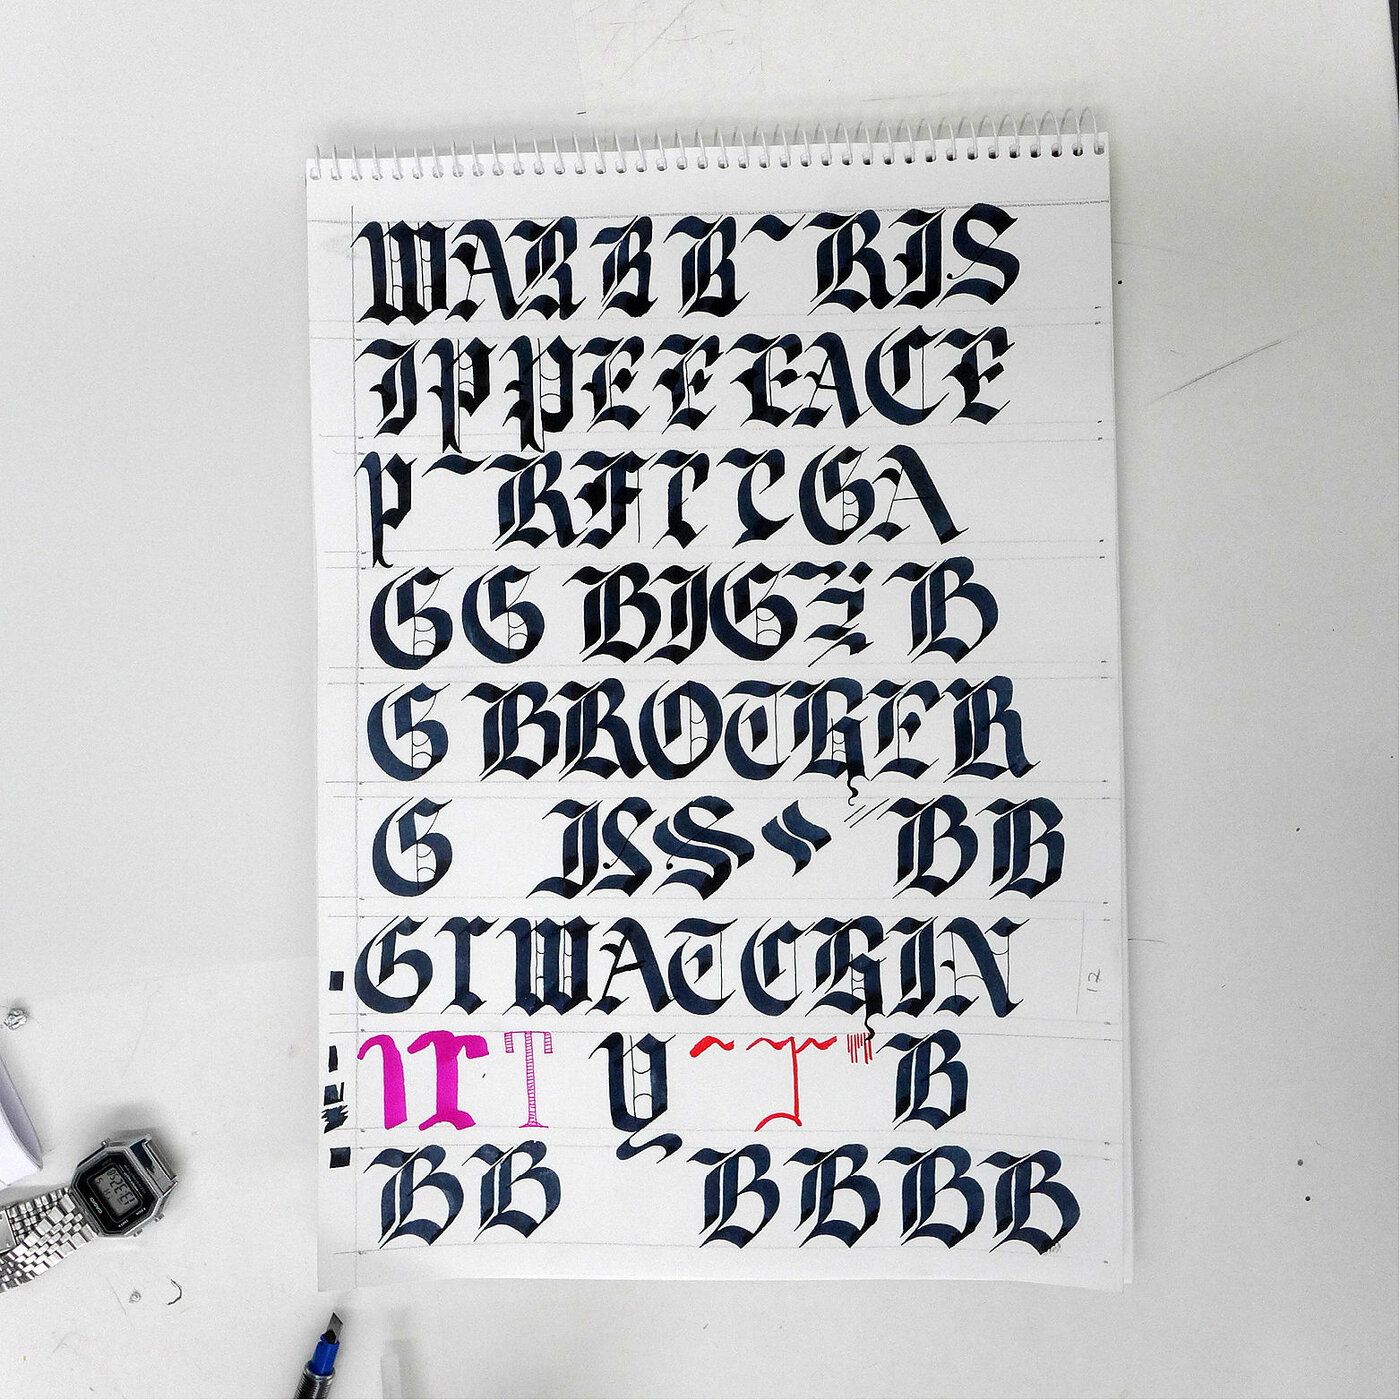 WAR B B RIS
IPPEEEACE
P RF GA
GG BIG Z B
G BROTHER
G IS S BB
GI WATCHIN
I T Y T B
BB BBBB
12